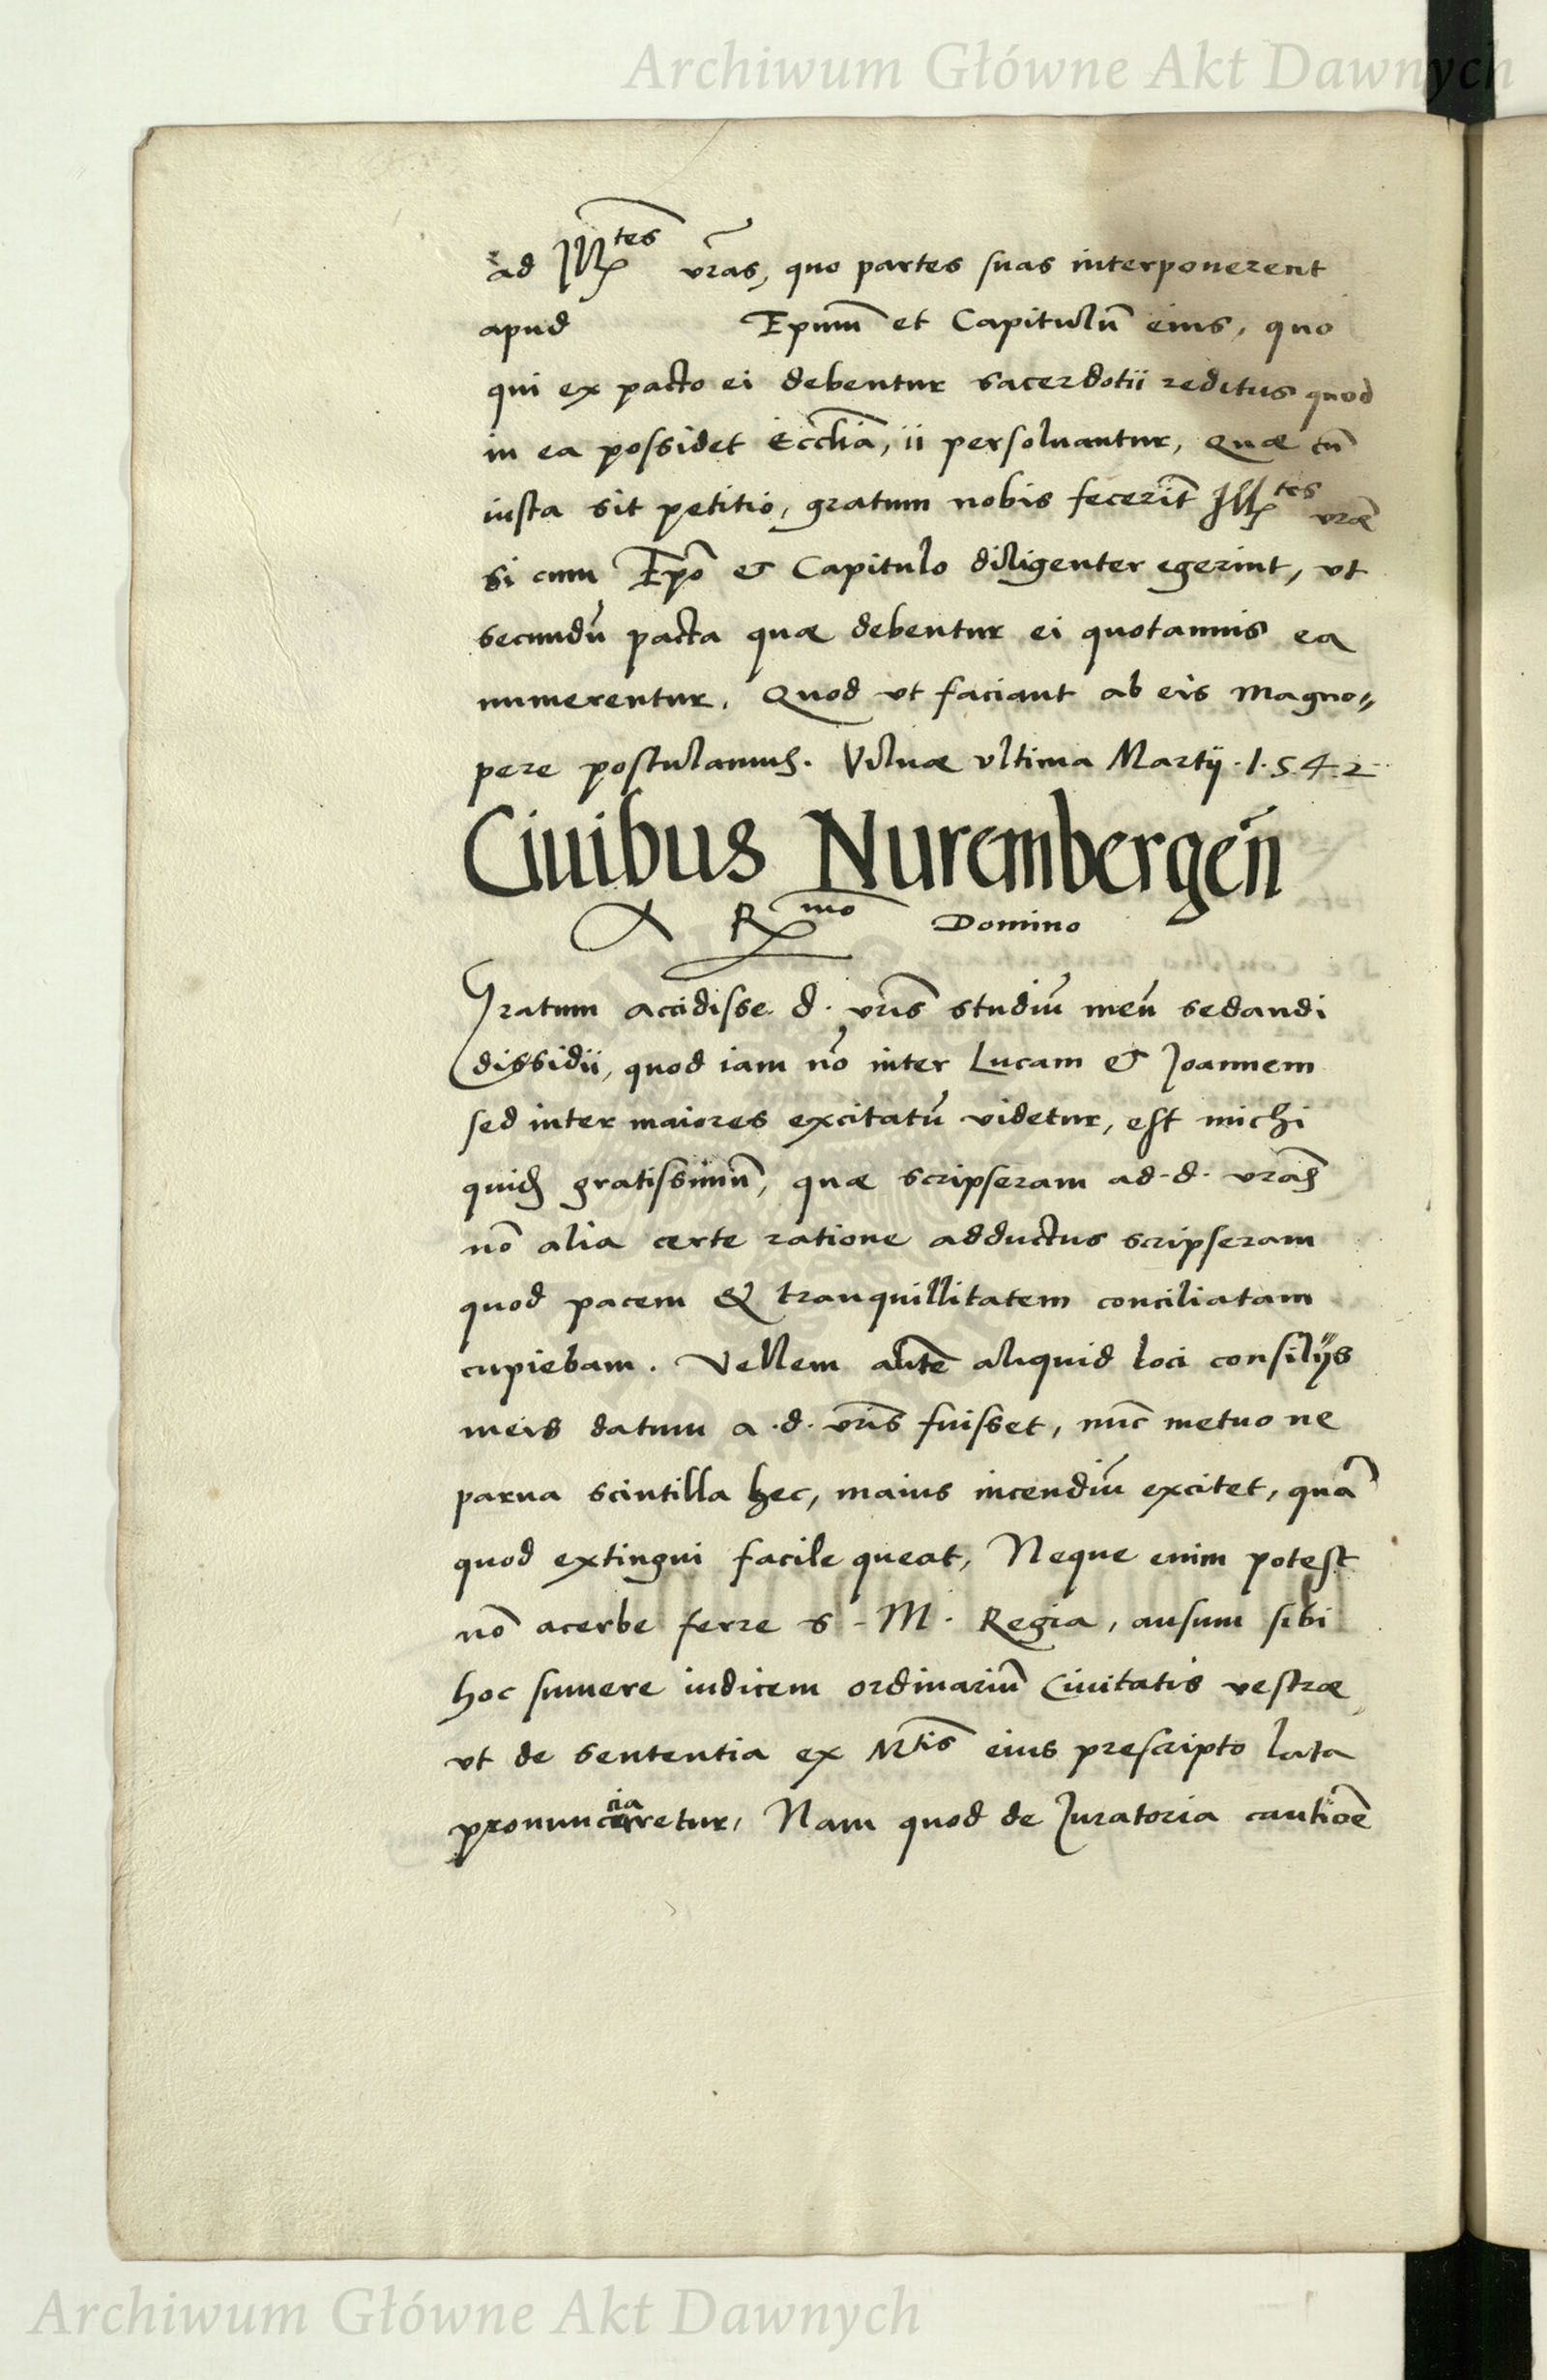 Archiwum Główne Akt Dawnych
ad Ill^tes vr̃as, quo partes suas interponerent
apud Epum̃ et Capitulũ eius, quo
qui ex pacto ei debentur sacerdotii reditus quod
in ea possidet Ecclĩa, ii persoluantur, Quae cũ
iusta sit petitio, gratum nobis fecerĩt Ill^tes vrãe
si cum Epõ & Capitulo diligenter egerint, vt
secundũ pacta quae debentur ei quotannis ea
numerentur. Quod vt faciant ab eis magno„
pere postulamus. Vilnae vltima Martij .1.5.4.2
Ciuibus Nurembergeñ
A R^mo Domino
Gratum accidisse d. vrĩs studiũ meũ sedandi
dissidii, quod iam nõ inter Lucam & Joannem
sed inter maiores excitatũ videtur, est michi
quidẽ gratissimũ, quae scripseram ad .d. vrãs
nõ alia certe ratione adductus scripseram
quod pacem & tranquillitatem conciliatam
cupiebam. Vellem autẽ aliquid loci consilijs
meis datum a .d. vrĩs fuisset, nũc metuo ne
parua scintilla hec, maius incendiũ excitet, quã
quod extingui facile queat, Neque enim potest
nõ acerbe ferre S. M. Regia, ausum sibi
hoc sumere iudicem ordinariũ Ciuitatis vestrae
vt de sententia ex M^tis eius prescripto lata
pronunciaretur, Nam quod de Juratoria cautiõe
Archiwum Główne Akt Dawnych